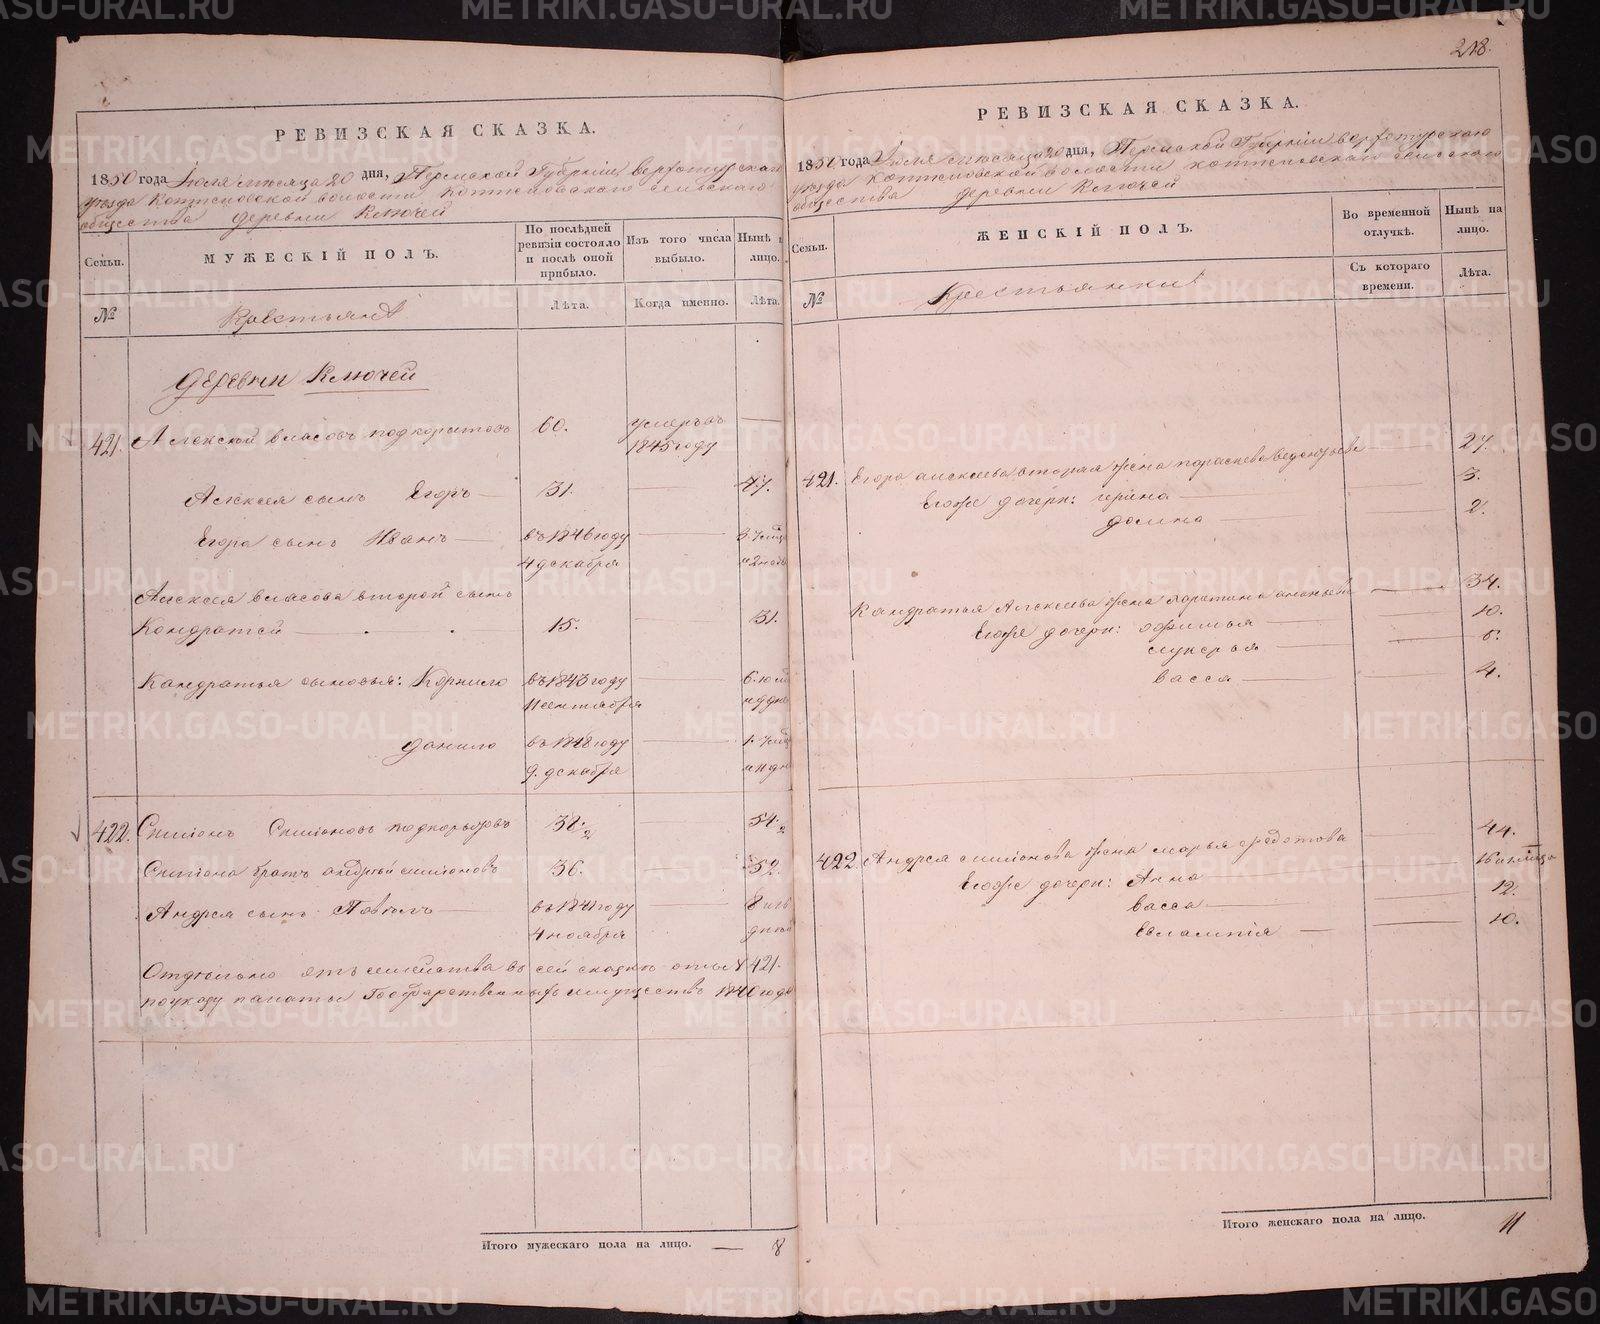 218.
РЕВИЗСКАЯ СКАЗКА.
1850 года Іюля месяца 20 дня, Пермской Губерніи верхотурскаго
уезда Коптеловской волости Коптеловскаго сельскаго
общества деревни Ключей
Семьи.
МУЖЕСКІЙ ПОЛЪ.
По послѣдней ревизіи состояло и послѣ оной прибыло.
Изъ того числа выбыло.
Нынѣ лицо.
№
Крестьяне
Лѣта.
Когда именно.
Лѣта.
деревни Ключей
421. Алексей власовъ подкорытовъ 60. умеръ въ
1845 году
Алексея сынъ Егоръ 31. 47.
Егора сынъ Иванъ въ 1846 году
4 декабря
Алексея власова второй сынъ
Кондратей 15. 31.
Кандратья сыновья: Корнило въ 1843 году
11 сентября
данило въ 1848 году
9. декабря
422. Симионъ Симионовъ подкорытовъ 38. 1/2 54. 1/2
Симиона братъ андрей симионовъ 36. 52.
Андрея сынъ Павелъ въ 1841 году
4 ноября
семейства въ сей сказке 421.
по указу палаты Государственныхъ имуществъ 1846 года
Итого мужескаго пола на лицо. 8
РЕВИЗСКАЯ СКАЗКА.
1850 года Іюля месяца 20 дня, Пермской Губерніи верхотурскаго
уезда Коптеловской волости коптеловскаго сельскаго
общества деревни Ключей
Семьи.
ЖЕНСКІЙ ПОЛЪ.
Во временной отлучкѣ.
Нынѣ на лицо.
№
Крестьянки
Съ котораго времени.
Лѣта.
421. Егора алексеева вторая жена парасковья 27.
Егоже дочери: ирина 3.
домна 2.
Кандратья Алексеева жена 34.
Егоже дочери: офимья 10.
лукерья 6.
васса 4.
422. Андрея симионова жена марья федотова 44.
Егоже дочери: Анна
васса 12.
Евлампія 10.
Итого женскаго пола на лицо. 11
METRIKI.GASO-URAL.RU